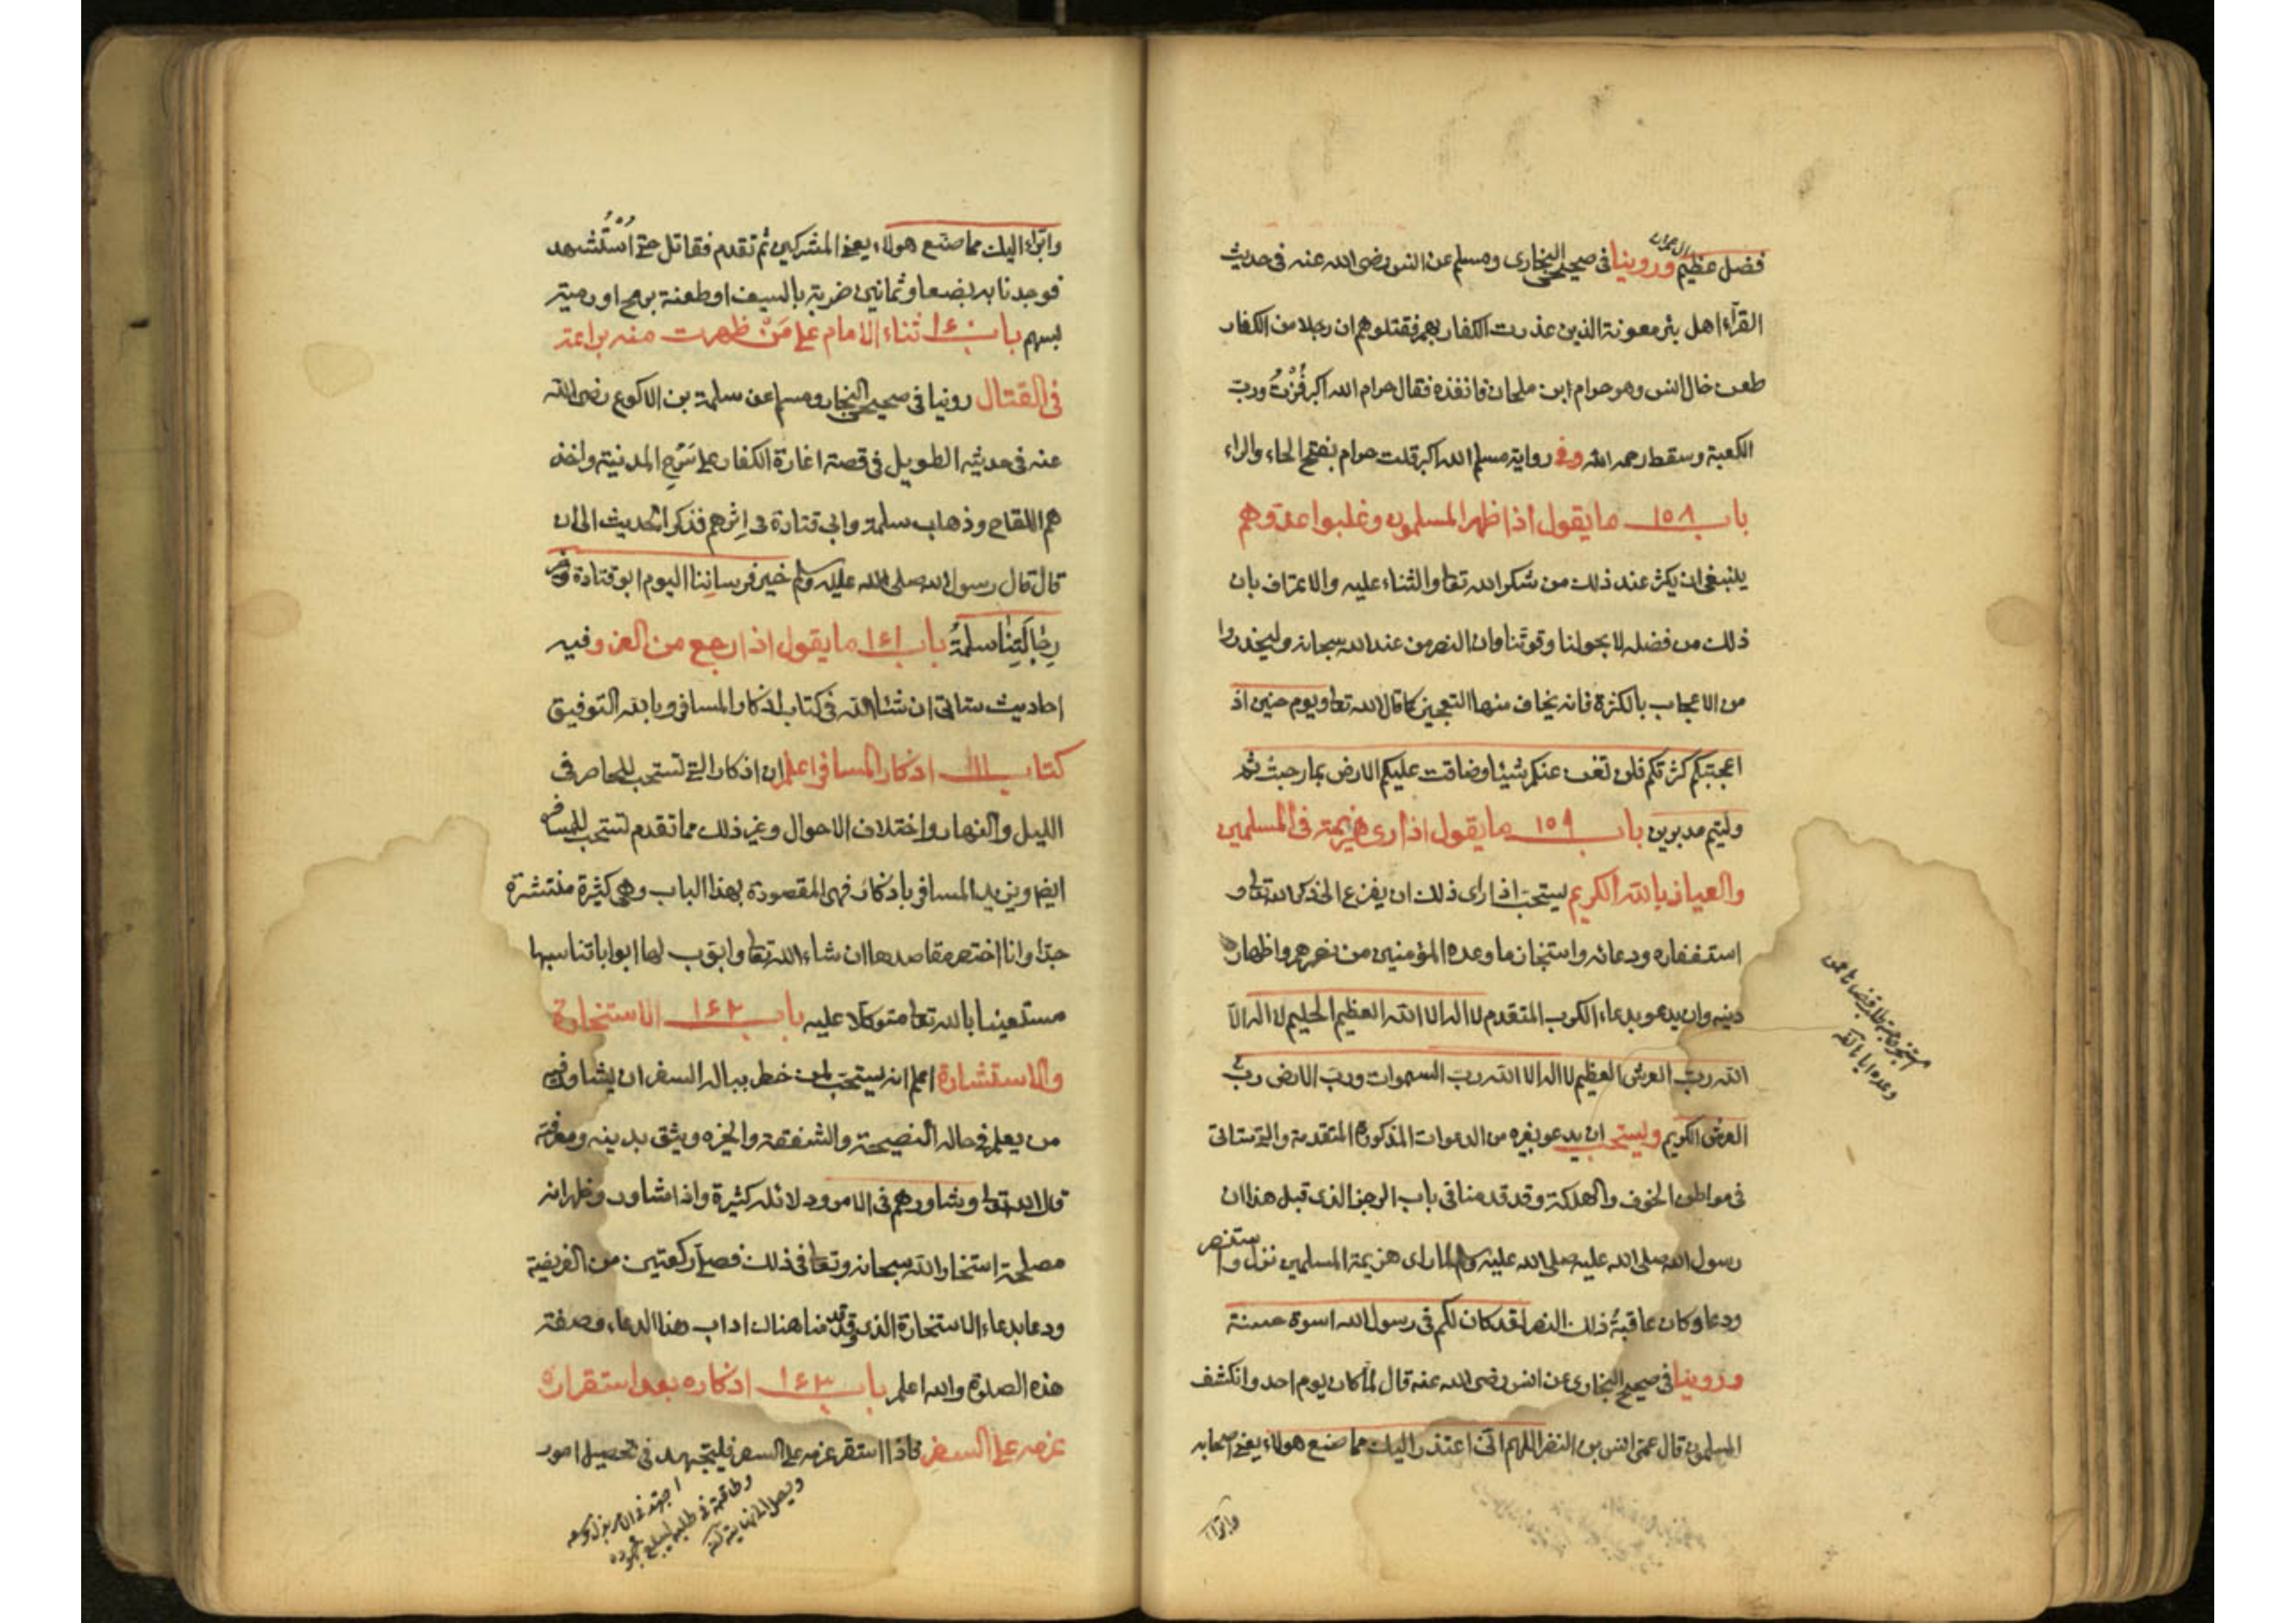 فضل عظيم وروينا فى صحيحى البخارى ومسلم عن انس رضى الله عنه فى حديث
ال عمران
القرّاء اهل بئر معونة الذين غدرت الكفار بهم فقتلوهم ان رجلا من الكفار
طعن خال انس وهو حرام ابن ملحان فانفذه فقال حرام الله اكبر فُزْتُ وربّ
الكعبة وسقط رحمه الله وفى رواية مسلم الله اكبر قلت حرام بفتح الحاء والراء
باب ١٥٨ ما يقول اذا ظهر المسلمون وغلبوا عدوهم
ينبغى ان يكثر عند ذلك من شكر الله تعا والثناء عليه والاعتراف بان
ذلك من فضله لا بحولنا وقوتنا وان النصر من عند الله سبحانه وليحذروا
من الاعجاب بالكثرة فانه يخاف منها التعجيز كما قال الله تعا ويوم حنين اذ
اعجبتكم كثرتكم فلن تغن عنكم شيئا وضاقت عليكم الارض بما رحبت ثم
وليتم مدبرين باب ١٥٩ ما يقول اذا راى هزيمة فى المسلمين
والعياذ بالله الكريم يستحبّ اذا راى ذلك ان يفزع الى ذكر الله تعا و
استغفاره ودعائه واستنجاز ما وعده المؤمنين من نصرهم واظهار
دينه وان يدعو بدعاء الكرب المتقدم لا اله الا الله العظيم الحليم لا اله الّا
الله ربّ العرش العظيم لا اله الا الله ربّ السموات وربّ الارض ربّ
العرش الكريم ويستحب ان يدعو بغيره من الدعوات المذكورة المتقدمة والتى ستاتى
فى مواطن الخوف والهلكة وقد قدمنا فى باب الرجز الذى قبل هذا ان
رسول الله صلى الله عليه صلى الله عليه وسلم لما راى هزيمة المسلمين نزل واستنصر
ودعا وكان عاقبةُ ذلك النصر لقد كان لكم فى رسول الله اسوة حسنة
وروينا فى صحيح البخارى عن انس رضى الله عنه قال لما كان يوم احد وانكشف
المسلمون قال عمى انس بن النضر اللهم انّى اعتذر اليك مما صنع هولاء يعنى اصحابه
وابرأ
وابرأ اليك مما صنع هولاء يعنى المشركين ثم تقدم فقاتل حتى اُسْتُشهد
فوجدنا به بضعا وثمانين ضربة بالسيف او طعنة برمح او رمية
بسهم باب ١٤٠ ثناء الامام على مَنْ ظهرت منه براعة
فى القتال روينا فى صحيحى البخارى ومسلم عن سلمة بن الاكوع رضى الله
عنه فى حديثه الطويل فى قصة اغارة الكفار على سَرْحِ المدينة واخذ
هم اللقاح وذهاب سلمة وابى قتادة فى اِثرهم فذكر الحديث الى ان
قال قال رسول الله صلى الله عليه وسلم خير فرساننا اليوم ابو قتادة وخير
رجّالَتِنا سلمةُ باب ١٤١ ما يقول اذا رجع من الغزو فيه
احاديث ستاتى ان شاء الله فى كتاب اذكار المسافر وبالله التوفيق
كتاب اذكار المسافر اعلم ان اذكار التى تستحب للحاضر فى
الليل والنهار واختلاف الاحوال وغير ذلك مما تقدم تستحب للمسافر
ايضا ويزيد المسافر باذكار فهى المقصودة بهذا الباب وهى كثيرة منتشرة
جدّا وانا اختصر مقاصدها ان شاء الله تعا وابوّب لها ابوابا تناسبها
مستعينا بالله تعا متوكّلا عليه باب ١٤٢ الاستخارة
والاستشارة اعلم انه يستحبّ لمن خطر بباله السفر ان يشاور فيه
من يعلم فى حاله النصيحة والشفقة والخبرة ويثق بدينه ومعرفته
قال الله تعا وشاورهم فى الامر ودلائله كثيرة واذا شاور وظهر انه
مصلحة استخار الله سبحانه وتعا فى ذلك فصلّى ركعتين من غير الفريضة
ودعا بدعاء الاستخارة الذى قدّمنا هناك اداب هذا الدعاء وصفة
هذه الصلوة والله اعلم باب ١٤٣ اذكاره بعد استقرار
عزمه على السفر فاذا استقر عزمه على السفر فليجتهد فى تحصيل امور
اجتهد فى الامر بذل وسعه
وطاقته فى طلبه ليبلغ مجهوده
ويصل الى نهايته